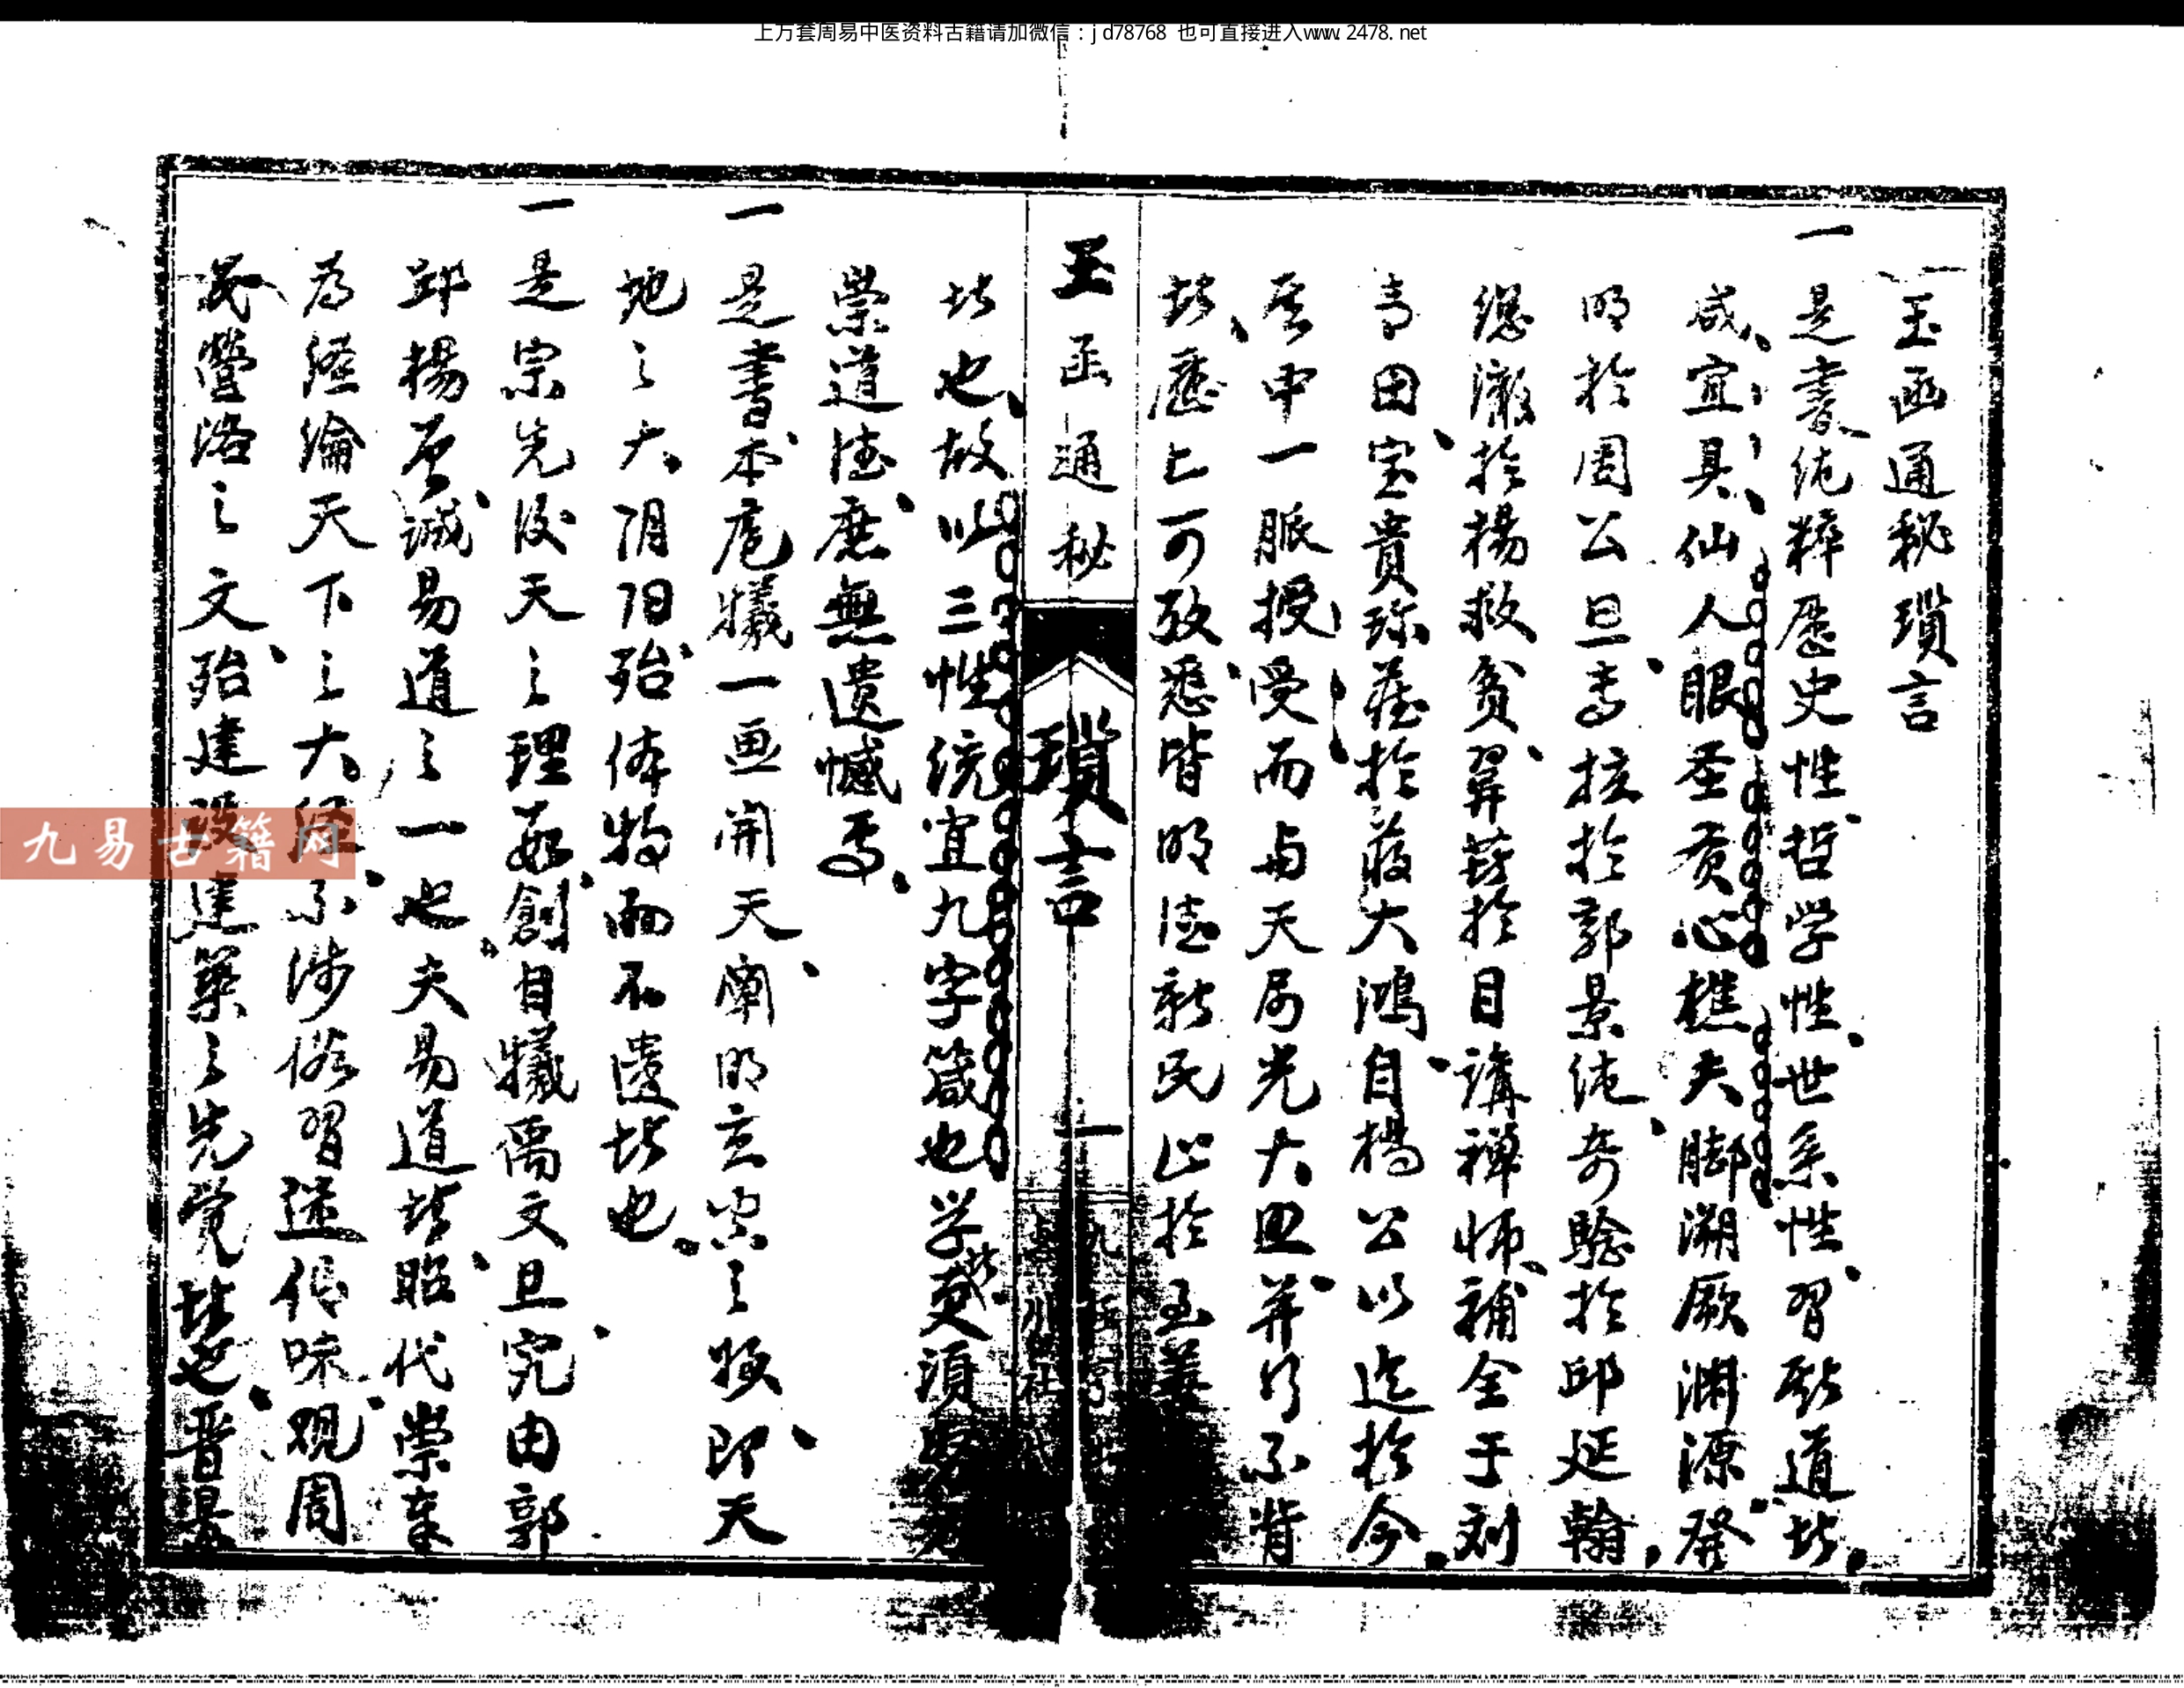 上万套周易中医资料古籍请加微信：jd78768 也可直接进入www.2478.net
玉函通秘瑣言
一是書純粹歷史性哲学性世系性習斯道者
咸宜具仙人眼圣贤心樵夫脚溯厥渊源發
明於周公旦高於郭景純奇驗於邱延翰
總澈於楊救貧昇於目講禅师補全于刘
青田宝貴珍藏於蒋大鴻自楊公以迄於今
一脈授受而与天局光大並行不背
者歷上可考悉皆明德新民止於至善
玉函通秘
瑣言
一
者也故以三性统宜九字箴也学者更須
崇道德庶無遺憾焉
一是書本庖犧一画開天闡明玄空之秘即天
地之大阴阳殆体物而不遗者也
一是宗先後天之理創自犧禹文旦究由郭
邱楊曾誠易道之一也夫易道者昭代崇奉
为經綸天下之大经不涉俗習迷信味观周
營洛之文殆建設建築之先觉者也晋
九易古籍网